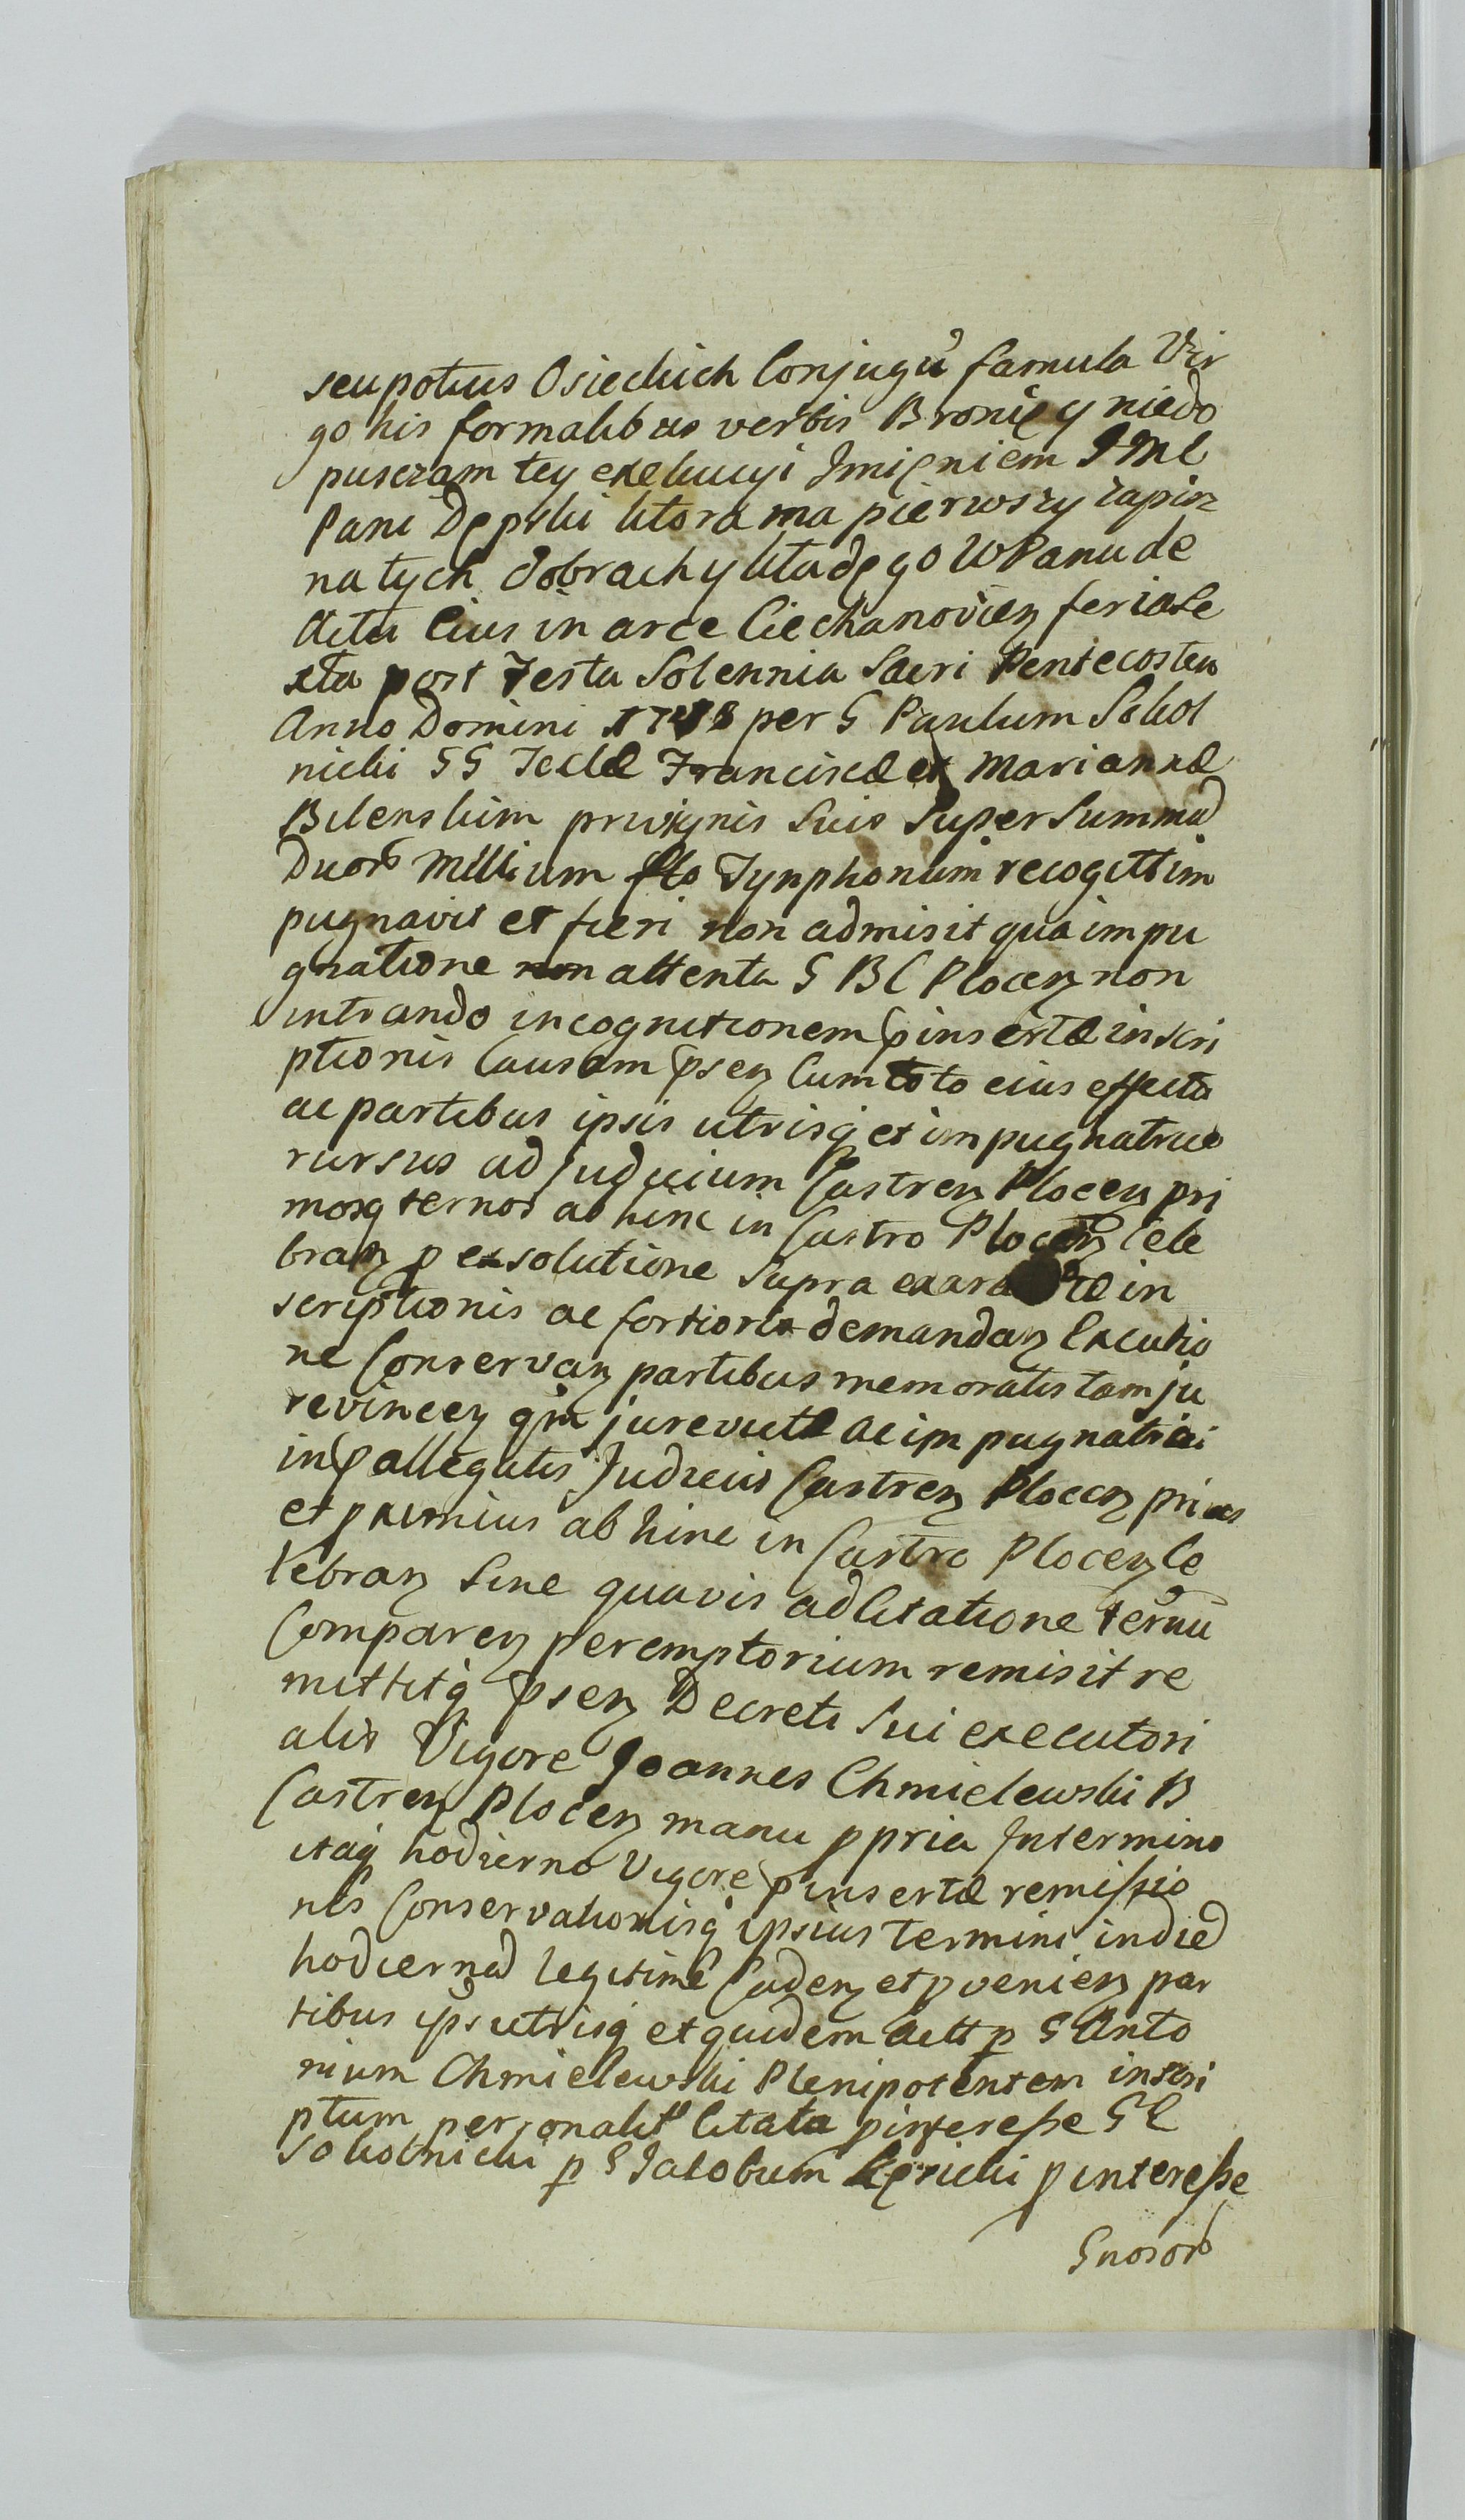 seu potius Osieckich Conjugũ famula Vir
go his formalibus verbis Bronię y niedo
puszczam tey exekucyi Jmięniem JMC
Pani Dępski ktora ma pierwszy zapis
na tych dobrach y kładę go WPanu de
Actu Eius in arce Ciechanovien feria Se
xta post Festa Solennia Sacri Pentecostes
Anno Domini per G Paulum Sokol
nicki GG Teclæ Franciscæ et Mariannæ
Bilenskim privignis Suis Super Summã
Duorũ Millium flo Tynphonum recogitt im
pugnavit et fieri non admisit qua impu
gnatione non attenta G BC Plocen non
intrando in cognitionem pinsertæ inscri
ptionis Causam psen Cum toto eius effectu
ac partibus ipsis utrisq et impugnatrice
rursus ad Judicium Castren Plocen pri
mosq ternos ab hinc in Castro Plocen cele
bran p exsolutione Supra exaratæ in
scriptionis ac fortioris demandan Executio
ne Conservan partibus memoratis tam ju
revincen qm jurevictæ ac impugnatrici
in pallegatis Judiciis Castren Plocen primis
et proximius ab hinc in Castro Plocen Ce
lebran Sine quavis adcitatione ternũ
Comparen peremptorium remisit re
mittitq psen Decreti Sui executori
alis Vigore Joannes Chmielewski B
Castren Plocen manu ppria In termino
itaq hodierno Vigore pinsertæ remissio
nis Conservationisq ipsius termini in diẽ
hodiernã legitime Caden et pvenien par
tibus ips utrisq et quidem Actt p G Anto
nium Chmielewski Plenipotentem inscri
ptum personalit citata pinteresse GG
Sokolnicki p G Jacobum Kęsicki pinteresse
Gnosorũ